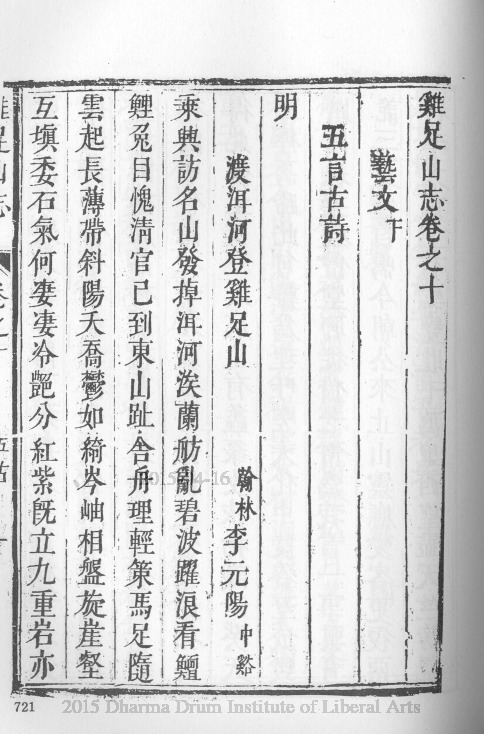 雞足山志卷之十
藝文下
五言古詩
明
渡洱河登雞足山 翰林李元陽中谿
乘興訪名山發掉洱河涘蘭舫亂碧波躍浪看鱣
鯉兎目愧淸官已到東山趾舍舟理輕策馬足隨
雲起長薄帶斜陽夭喬鬱如綺岑岫相盤旋崖壑
互塡委石氣何凄凄冷艷分紅紫旣立九重岩亦
雞足山志
卷之十
721
2015-04-16
2015 Dharma Drum Institute of Liberal Arts